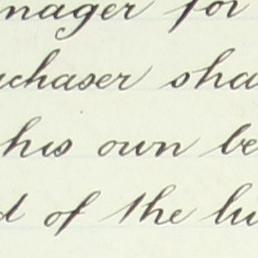 nager for
chaser sha
his own be
d of the